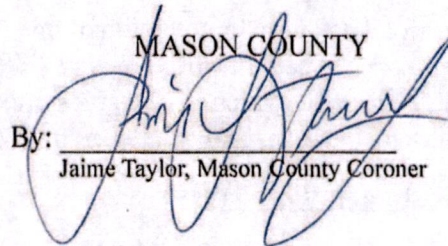 MASON COUNTY
By:
Jaime Taylor, Mason County Coroner